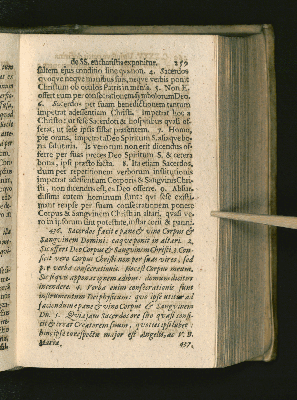 de SS. eucharistia exponitur. 259
saltem ejus conditio sine qua non. 4. Sacerdos
quoque neque manibus suis, neque verbis ponit
Christum ob oculos Patris in mensa. 5. Non
offert eum per consecrationem symbolorum Deo.
6. Sacerdos per suam benedictionem tantum
impetrat adessentiam Christi. Impetrat hoc a
Christo: at sese Sacerdoti & hospitibus quasi offerat,
ut sese ipsis sistat præsentem. 7. Homo,
pie orans, impetrat a Deo Spiritum S. aliaque bona
salutaria. Is vero tum non erit dicendus offerre
per suas preces Deo Spiritum S. & cetera
bona, ipsi præsto facta. 8. Ita etiam Sacerdos,
dum per repetitionem verborum institutionis
impetrat adessentiam Corporis & Sanguinis Christi,
non dicendus est, ea Deo offerre. 9. Absurdissimi
autem hominum sunt: qui sese existimant
reipse per suam consecrationem ponere
Corpus & Sanguinem Christi in altari, quasi vero
in ipsorum sint potestate, instar cerei & panni.
436. Sacerdos facit e pane & vino Corpus &
Sanguinem Domini: eaque ponit in altari. 2.
Sic offert Deo Corpus & Sanguinem Christi. 3. Conficit
vero Corpus Christi non per suas vires; sed
per verba consecrationis. Hoc est Corpus meum.
Sic ignis apponens ignem ædibus: domum dicitur
incendere. 4. Verba enim consecrationis sunt
instrumentum Metaphysicum: quo ipse utitur ad
faciendum e pane & vino Corpus & Sanguinem
Dn. 5. Quia jam Sacerdos ore suo quasi conficit
& creat Creatorem suum, quoties ipsi lubet:
hinc ipse conspectu major est Angelis, ac V. B.
Maria.
437.